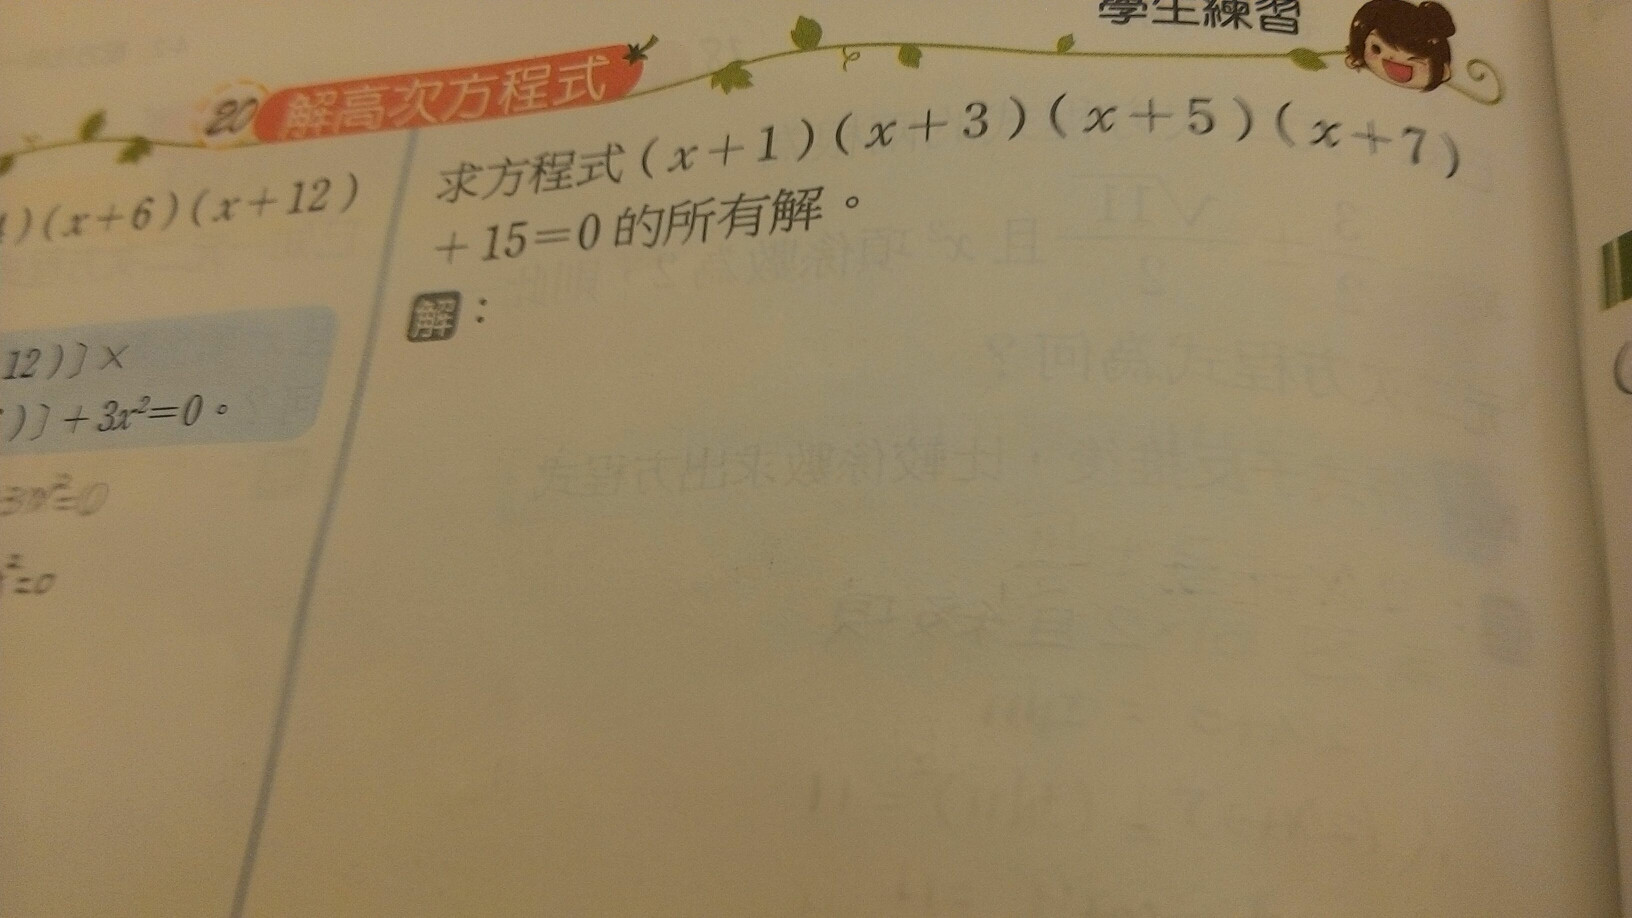 學生練習
20 解高次方程式
)(x+6)(x+12)
12)]×
)]+3x²=0。
3m²=0
²=0
求方程式(x+1)(x+3)(x+5)(x+7)
+15=0的所有解。
解：